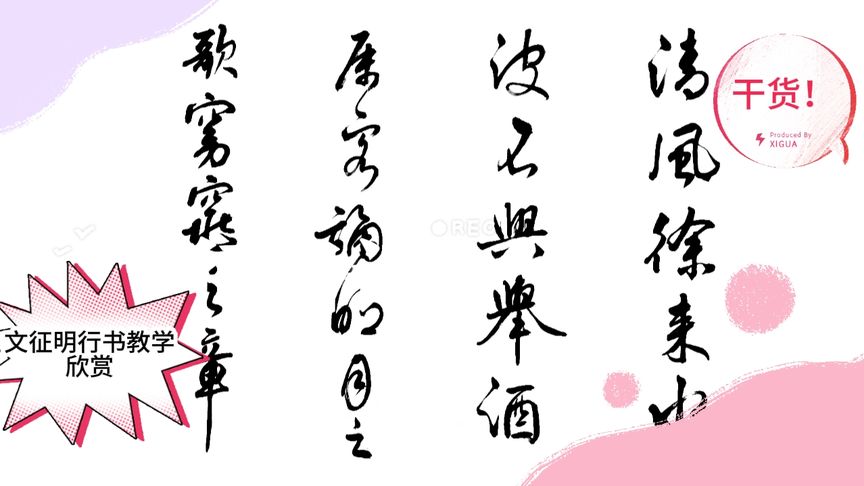 清風徐来水
波不興舉酒
属客誦明月之
歌窈窕之章
干货！
Produced By
XIGUA
文征明行书教学
欣赏